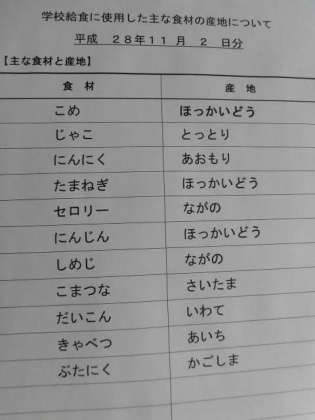 学校給食に使用した主な食材の産地について
平成 28年11 月 2 日分
【主な食材と産地】
食 材 産 地
こめ ほっかいどう
じゃこ とっとり
にんにく あおもり
たまねぎ ほっかいどう
セロリー ながの
にんじん ほっかいどう
しめじ ながの
こまつな さいたま
だいこん いわて
きゃべつ あいち
ぶたにく かごしま